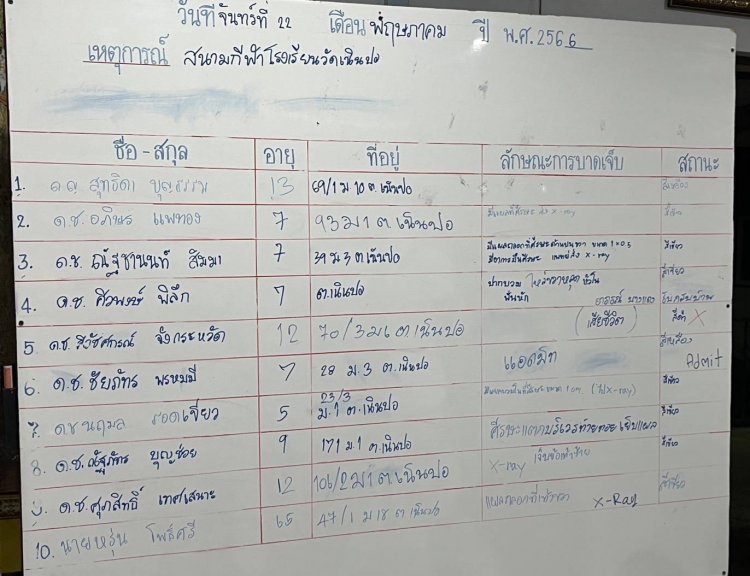 วันที่จันทร์ที่ 22 เดือน พฤษภาคม ปี พ.ศ. 2566
เหตุการณ์ สนามกีฬาโรงเรียนวัดเนินปอ
ชื่อ - สกุล อายุ ที่อยู่ ลักษณะการบาดเจ็บ สถานะ
1. ด.ญ. สุทธิดา บุญธรรม 13 69/1 ม 10 ต. เนินปอ สีเหลือง
2. ด.ช. อภิษร แพทอง 7 93 ม 1 ต เนินปอ มีแผลที่ศีรษะ ส่ง x-ray สีเขียว
3. ด.ช. ณัฐชานนท์ สิมมา 7 39 ม 3 ต เนินปอ มีแผลถลอกที่ศีรษะด้านบนขวา ขนาด 1×0.5 สีเขียว
แพทย์ส่ง x-ray
4. ด.ช. ศิวพงษ์ พิลึก 7 ต.เนินปอ ปากบวม ฟันหัก สีเขียว
5 ด.ช. สิงชัศกรณ์ จั่งกระหวัด 12 70/3 ม 6 ต เนินปอ (เสียชีวิต) สีดำ X
6. ด.ช. ชัยภัทร พรหมมี 7 28 ม. 3 ต. เนินปอ แอดมิท สีเหลือง Admit
7. ด.ช นฤมล รอดเขียว 5 23/3 ม. 1 ต. เนินปอ (ไม่ x-ray) สีเขียว
8. ด.ช. ณัฐภัทร บุญช่วย 9 171 ม. 1 ต. เนินปอ ศีรษะแตกบริเวณท้ายทอย เย็บแผล สีเขียว
9. ด.ช. ศุภสิทธิ์ เทศเสนาะ 12 106/2 ม 1 ต เนินปอ x-ray เจ็บข้อเท้าซ้าย สีเขียว
10. นายหรุ่น โพธิ์ศรี 65 47/1 ม 18 ต เนินปอ แผลถลอกที่เข่าขวา x-Ray สีเขียว